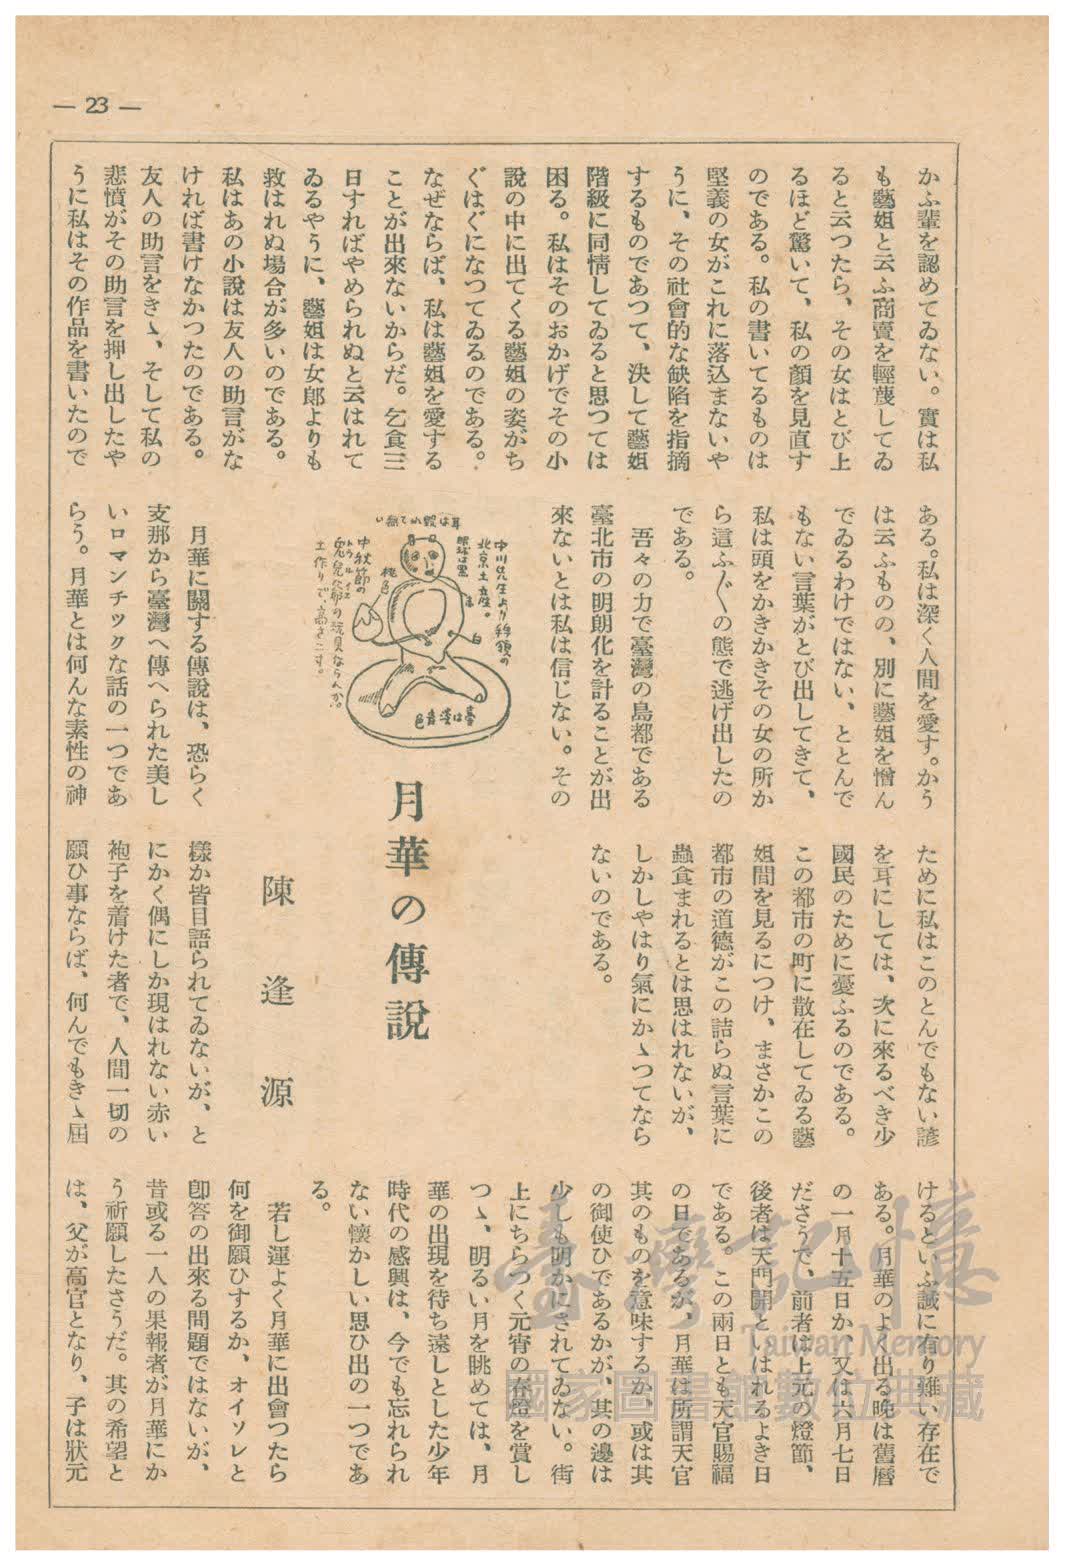 — 23 —
かふ輩を認めてゐない。實は私
も藝妲と云ふ商賣を輕蔑してゐ
ると云つたら、その女はとび上
るほど驚いて、私の顏を見直す
のである。私の書いてるものは
堅義の女がこれに落込まないや
うに、その社會的な缺陷を指摘
するものであつて、決して藝妲
階級に同情してゐると思つては
困る。私はそのおかげでその小
說の中に出てくる藝妲の姿がち
ぐはぐになつてゐるのである。
なぜならば、私は藝妲を愛する
ことが出來ないからだ。乞食三
日すればやめられぬと云はれて
ゐるやうに、藝妲は女郎よりも
救はれぬ場合が多いのである。
私はあの小說は友人の助言がな
ければ書けなかつたのである。
友人の助言をきゝ、そして私の
悲憤がその助言を押し出したや
うに私はその作品を書いたので
ある。私は深く人間を愛す。かう
は云ふものの、別に藝妲を憎ん
でゐるわけではない、ととんで
もない言葉がとび出してきて、
私は頭をかきかきその女の所か
ら這ふ〱の態で逃げ出したの
である。
吾々の力で臺灣の島都である
臺北市の明朗化を計ることが出
來ないとは私は信じない。その
ために私はこのとんでもない諺
を耳にしては、次に來るべき少
國民のために憂ふるのである。
この都市の町に散在してゐる藝
妲間を見るにつけ、まさかこの
都市の道德がこの詰らぬ言葉に
蟲食まれるとは思はれないが、
しかしやはり氣にかゝつてなら
ないのである。
中川先生より拜領の
北京土産。
眼球は黑
耳は毀れて無い
桃色
赤
白
中秋節の
兎兒爺の玩具ならんか。
トウルイエ
土作りで、高さ二寸。
臺は淡青色
月華の傳說
陳逢源
月華に關する傳說は、恐らく
支那から臺灣へ傳へられた美し
いロマンチックな話の一つであ
らう。月華とは何んな素性の神
樣か皆目語られてゐないが、と
にかく偶にしか現はれない赤い
袍子を着けた者で、人間一切の
願ひ事ならば、何んでもきゝ屆
けるといふ誠に有り難い存在で
ある。月華のよく出る晩は舊曆
の一月十五日か、又は六月七日
ださうで、前者は上元の燈節、
後者は天門開といはれるよき日
である。この兩日とも天官賜福
の日であるが、月華は所謂天官
其のものを意味するか、或は其
の御使ひであるかが、其の邊は
少しも明かにされてゐない。街
上にちらつく元宵の春燈を賞し
つゝ、明るい月を眺めては、月
華の出現を待ち遠しとした少年
時代の感興は、今でも忘れられ
ない懷かしい思ひ出の一つであ
る。
若し運よく月華に出會つたら
何を御願ひするか、オイソレと
卽答の出來る問題ではないが、
昔或る一人の果報者が月華にか
う祈願したさうだ。其の希望と
は、父が高官となり、子は狀元
臺灣記憶
Taiwan Memory
國家圖書館數位典藏